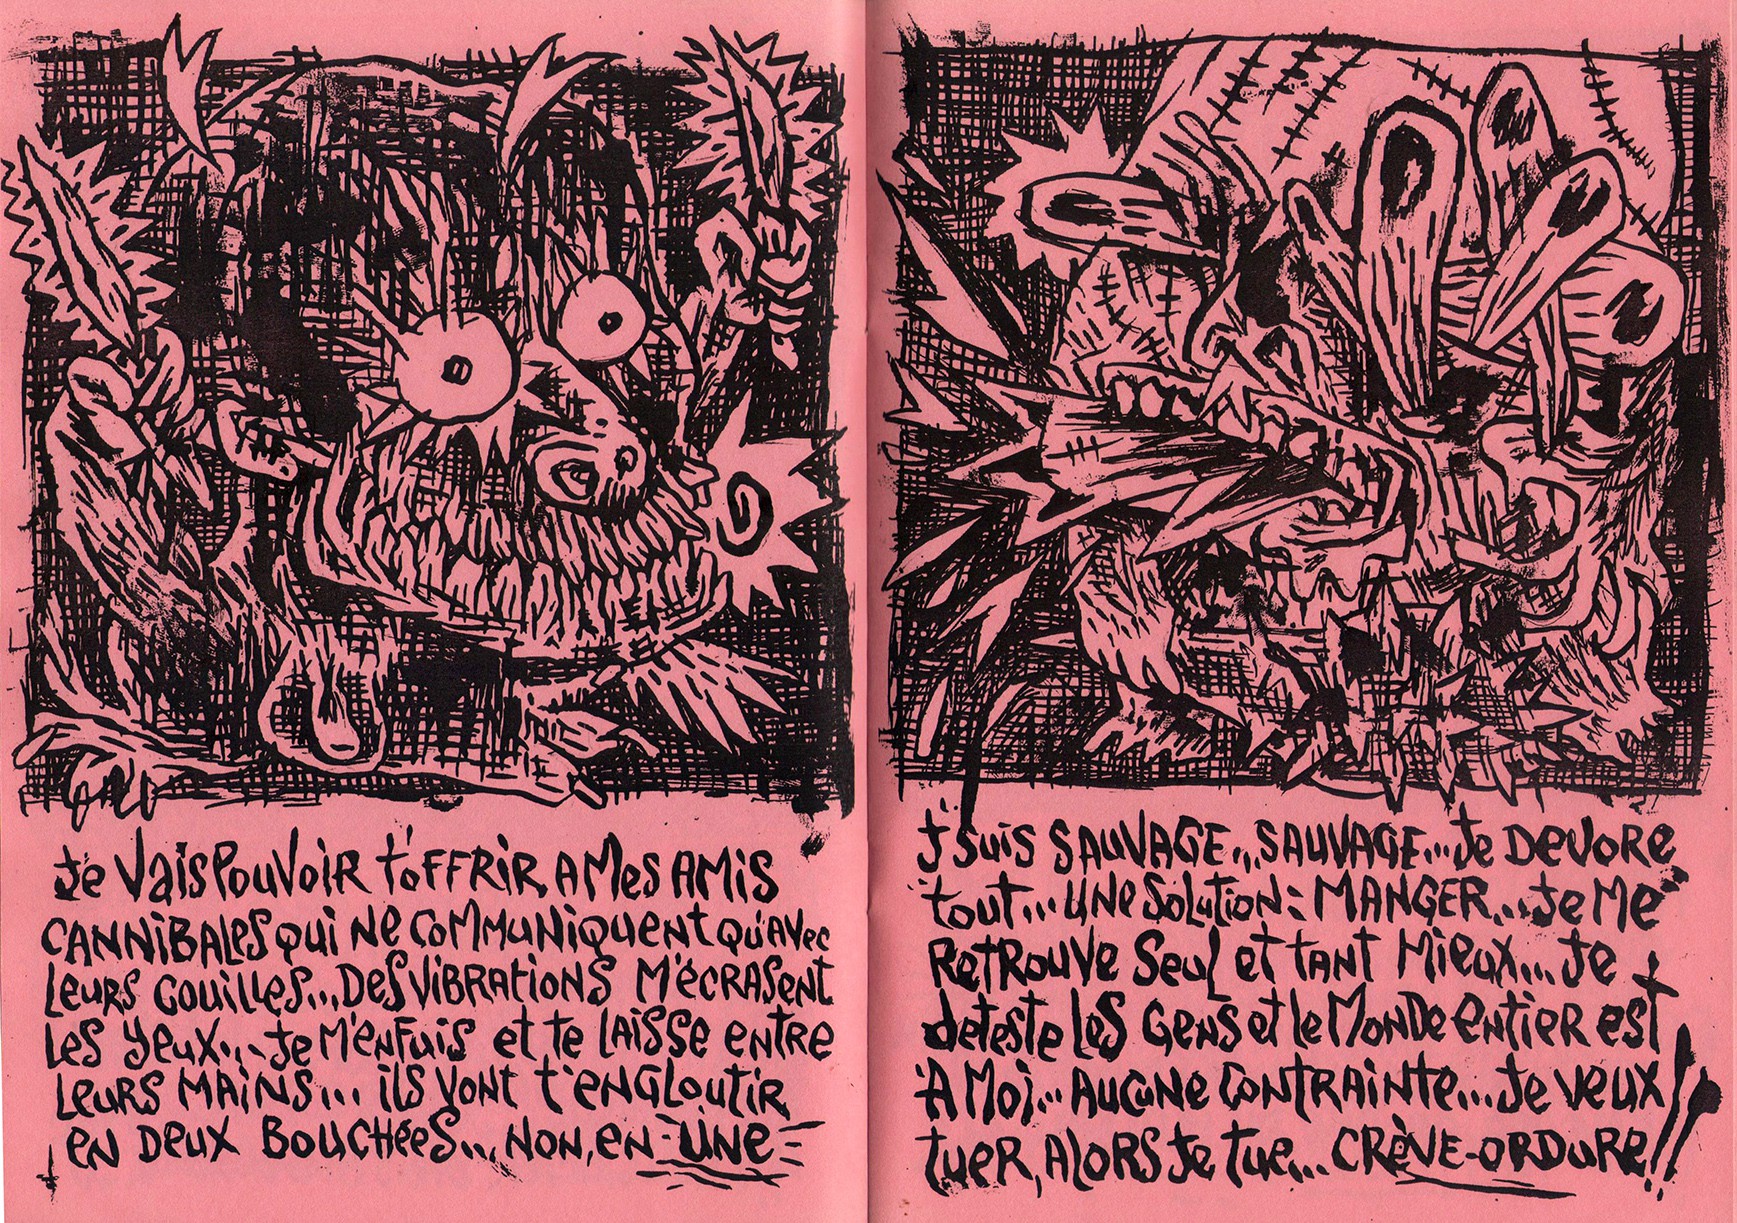 Je VAis POUVOIR t'OFFRIR A Mes AMIS
CANNIBALeS qui Ne COMMUNIQUENT QU'AVec
LeURS COUILLES... Des VIBRATIONS M'ÉCRASENT
Les YeuX... Je M'eNFUIS et te LAISSE eNtRe
LeURS MAINS... ILS VONT t'eNGLOUTIR
eN DeuX BOUCHÉeS... NON, eN UNE
J'SUIS SAUVAGE... SAUVAGE... Je DeVORe
tOUT... UNe SOLUTION: MANGER... Je Me
ReTROUVe SeuL et tANT MieuX... Je
deteste Les GeNS et le MONDe eNtieR est
A MOI... AUCUNE CONTRAINte... Je VeuX
tueR, ALORS Je tue... CRÈVE-ORDURE!!